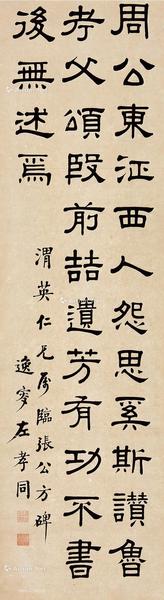 周公東征西人怨思奚斯讚魯
考父頌殷前喆遺芳有功不書
後無述焉
渭英仁兄屬臨張公方碑
逸叟左孝同